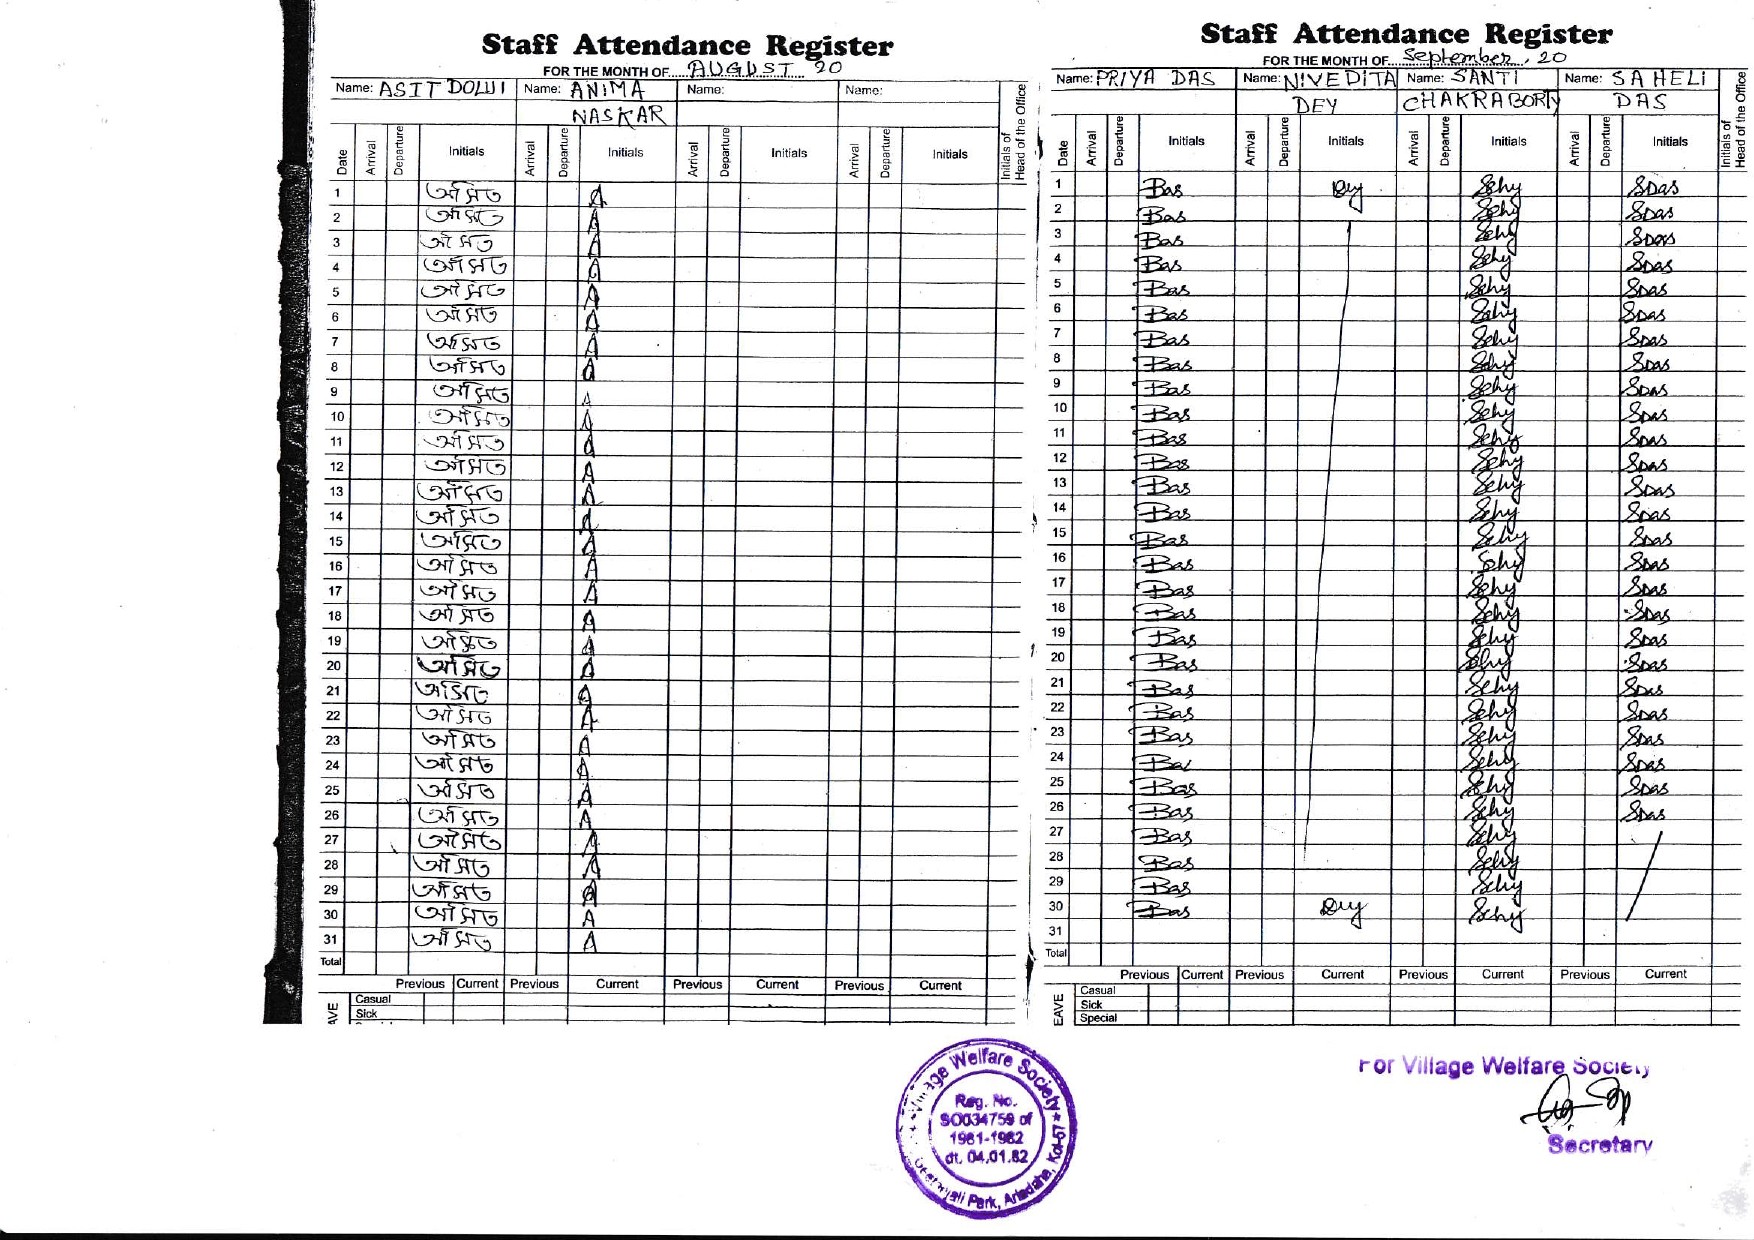 Staff Attendance Register
FOR THE MONTH OF AUGUST 20
Name: ASIT DOLUI Name: ANIMA NASKAR Name: Name:
Date Arrival Departure Initials Arrival Departure Initials Arrival Departure Initials Arrival Departure Initials Initials of Head of the Office
1 অসিত A
2 অসিত A
3 অসিত A
4 অসিত A
5 অসিত A
6 অসিত A
7 অসিত A
8 অসিত A
9 অসিত A
10 অসিত A
11 অসিত A
12 অসিত A
13 অসিত A
14 অসিত A
15 অসিত A
16 অসিত A
17 অসিত A
18 অসিত A
19 অসিত A
20 অসিত A
21 অসিত A
22 অসিত A
23 অসিত A
24 অসিত A
25 অসিত A
26 অসিত A
27 অসিত A
28 অসিত A
29 অসিত A
30 অসিত A
31 অসিত A
Total
Previous Current Previous Current Previous Current Previous Current
Casual
Sick
Staff Attendance Register
FOR THE MONTH OF September, 20
Name: PRIYA DAS Name: NIVEDITA DEY Name: SANTI CHAKRABORTY Name: SAHELI DAS
Date Arrival Departure Initials Arrival Departure Initials Arrival Departure Initials Arrival Departure Initials Initials of Head of the Office
1 Bas Dey Schy SDas
2 Bas Schy SDas
3 Bas Schy SDas
4 Bas Schy SDas
5 Bas Schy SDas
6 Bas Schy SDas
7 Bas Schy SDas
8 Bas Schy SDas
9 Bas Schy SDas
10 Bas Schy SDas
11 Bas Schy SDas
12 Bas Schy SDas
13 Bas Schy SDas
14 Bas Schy SDas
15 Bas Schy SDas
16 Bas Schy SDas
17 Bas Schy SDas
18 Bas Schy SDas
19 Bas Schy SDas
20 Bas Schy SDas
21 Bas Schy SDas
22 Bas Schy SDas
23 Bas Schy SDas
24 Bas Schy SDas
25 Bas Schy SDas
26 Bas Schy SDas
27 Bas Schy
28 Bas Schy
29 Bas Schy
30 Bas Dey Schy
31
Total
Previous Current Previous Current Previous Current Previous Current
Casual
Sick
Special
Village Welfare Society
Reg. No.
SO034759 of
1981-1982
dt. 04.01.82
Park, Ariadaha, Kol-57
For Village Welfare Society
Secretary